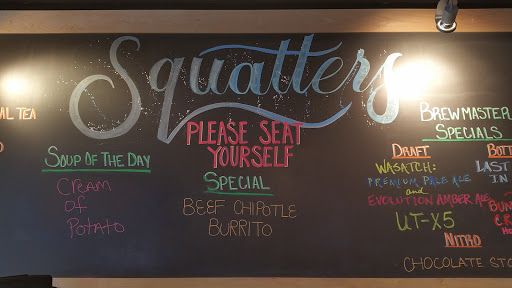 Squatters
PLEASE SEAT
YOURSELF
TEA
SOUP OF THE DAY
CREAM
OF
POTATO
SPECIAL
BEEF CHIPOTLE
BURRITO
BREWMASTER
SPECIALS
DRAFT
WASATCH:
PREMIUM PALE ALE
and
EVOLUTION AMBER ALE
UT-X5
NITRO
CHOCOLATE
LAST
IN